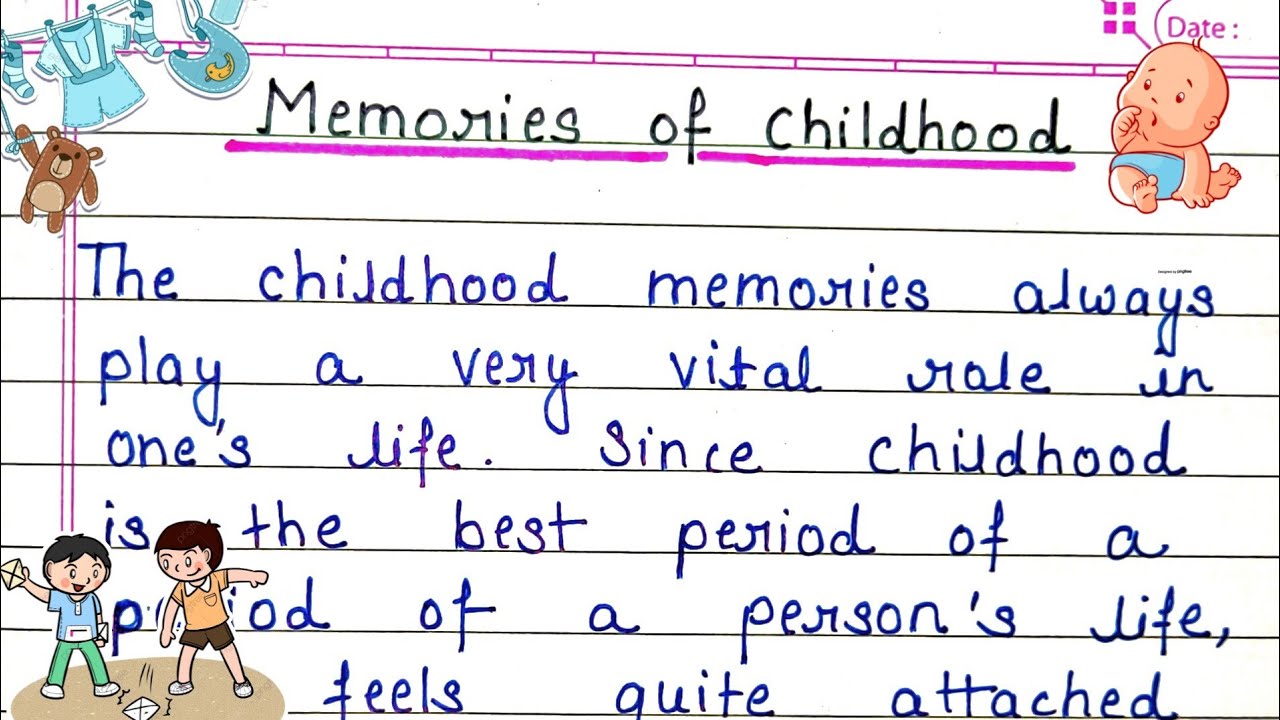 Date :
Memories of childhood
The childhood memories always
play a very vital role in
one's life. Since childhood
is the best period of a
of a person's life,
feels quite attached